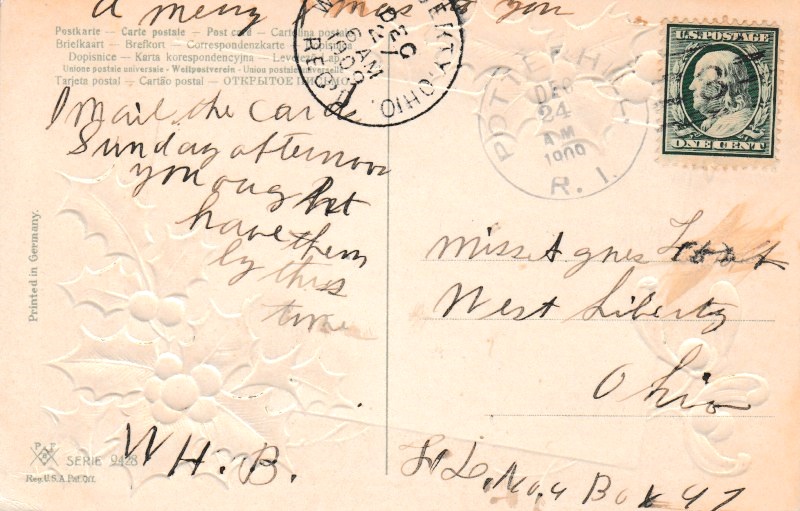 A merry xmas to you
Postkarte — Carte postale — Post card — Cartolina postale
Briefkaart — Brefkort — Correspondenzkarte —
Dopisnice — Karta korespondencyjna —
Unione postale universale - Weltpostverein - Union postale universelle
Tarjeta postal — Cartão postal — ОТКРЫТОЕ
I Mail the card
Sunday afternoon
you ought
have them
by this
time
W. H. B.
Printed in Germany.
SERIE 9428
Reg. U.S.A. Pat. Off.
LIBERTY, OHIO.
DEC
27
6 AM
1909
REC'D
POTTER HILL
DEC
24
AM
1909
R. I.
U.S. POSTAGE
ONE CENT
Miss Agnes
West Liberty
Ohio
No. 4 Box 47